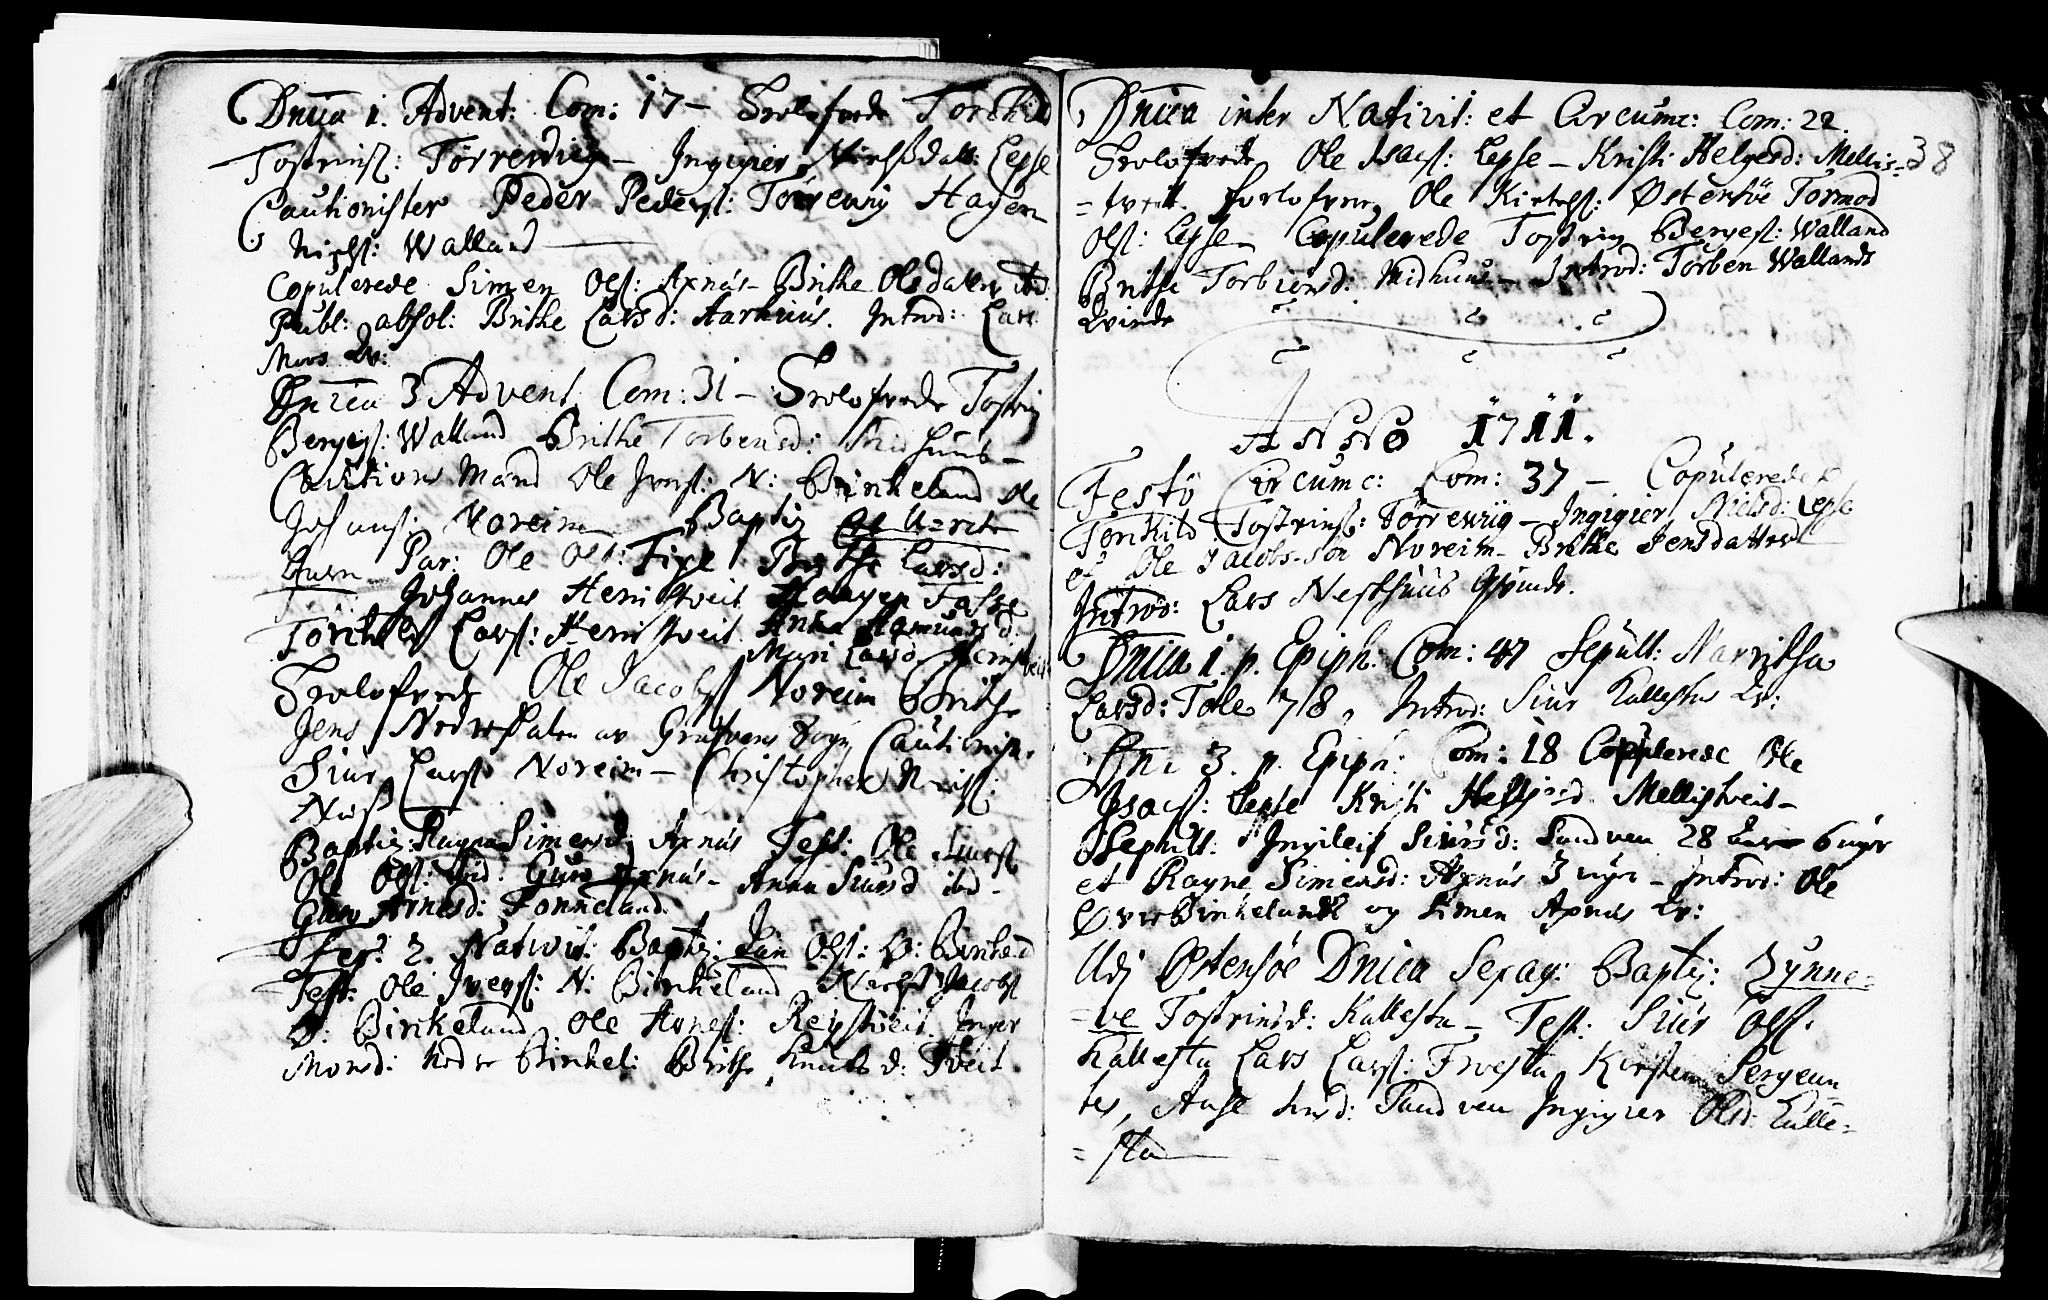 Dnica 1. Advent: Com: 17 – Trolofvede Torkild
Tostens: Tørrevig – Ingigier Nielsdatt: Lepse
Cautionister Peder Peders: Torrevig Hagen
Niels: Walland
Copulerede Simen Ols: Axnæs – Brithe Olsdatter
Publ: absol: Brithe Larsd: Aarhuus. Introd: Lars
Moos Qv:
Dnica 3 Advent Com: 31 – Trolofvede Tostein
Berges: Walland Brithe Torbensd: Midhuus –
Cautions Mænd Ole Ivers: N: Birkeland Ole
Noreim Baptiz
Par: Ole Ols: Brithe Larsd:
Johannes Hemstveit Haagen
Torkild Lars: Hemstveit Anna Aamunds d:
Mari Larsd Hemstveit
Trolofvede Ole Jacobs Noreim Brithe
Jens av Gravens Sogn Cautionister
Siur Lars: Noreim – Christopher Niels:
Næs
Baptiz: Ragna Simensd: Axnæs Test: Ole Siurs:
Ole Ols: ibid. Guro Axnæs – Anna Siursd ibd –
Guro Arnesd: Fonneland.
Fer: 2. Nativit: Baptiz: Jan Ols: Ø: Birkeland
Test: Ole Ivers: N: Birkeland Niels Jacobs
Ø: Birkeland Ole Arnes: Reistveit. Inger
Monsd: Nedre Birkel: Brithe Knuts d: Tveit.
Dnica inter Nativit: et Circumc: Com: 22.
38
Trolofvede Ole Isacs: Lepse – Kristi Helgesd: Mellis-
=tveit. forlofvere Ole Østensöe Tormod
Ols: Lepse – Copulerede Tostein Berges: Walland
Brithe Torbiørsd: Midhuus – Introd: Torben Wallands
Qvinde
ANNO 1711.
Festo Circumc: Com: 37 – Copulerede
Torkild Tosteins: Törrewiig – Ingigier Nielsd: Lepse
et Ole Jacobs-søn Noreim – Brithe Jensdatter
Introd: Lars Nesthuus Qvinde.
Dnica 1. p. Epiph: Com: 47 Sepult: Marritha
Larsd: Tole 78, Introd: Siur Kallestad Qv:
Dni 3. p. Epiph: Com: 18 Copulerede Ole
Isacs: Lepse Kristi Helgesd Mellistveit –
Sepult: Ingileif Siursd: Sandven 28 6 uger
et Ragne Simensd: Axnæs 3 uger – Introd: Ole
Ovre Birkeland og Simen Axnæs Qv:
Udj Østensöe Dnica Sexag: Baptiz: Zynne=
=ve Tosteinsd: Kallestad – Test: Siur Ols:
Kallesta Lars Lars: Kirsten Sergean
tes, Aase d: Sandven Ingigier Olsd: Kalle=
=sta